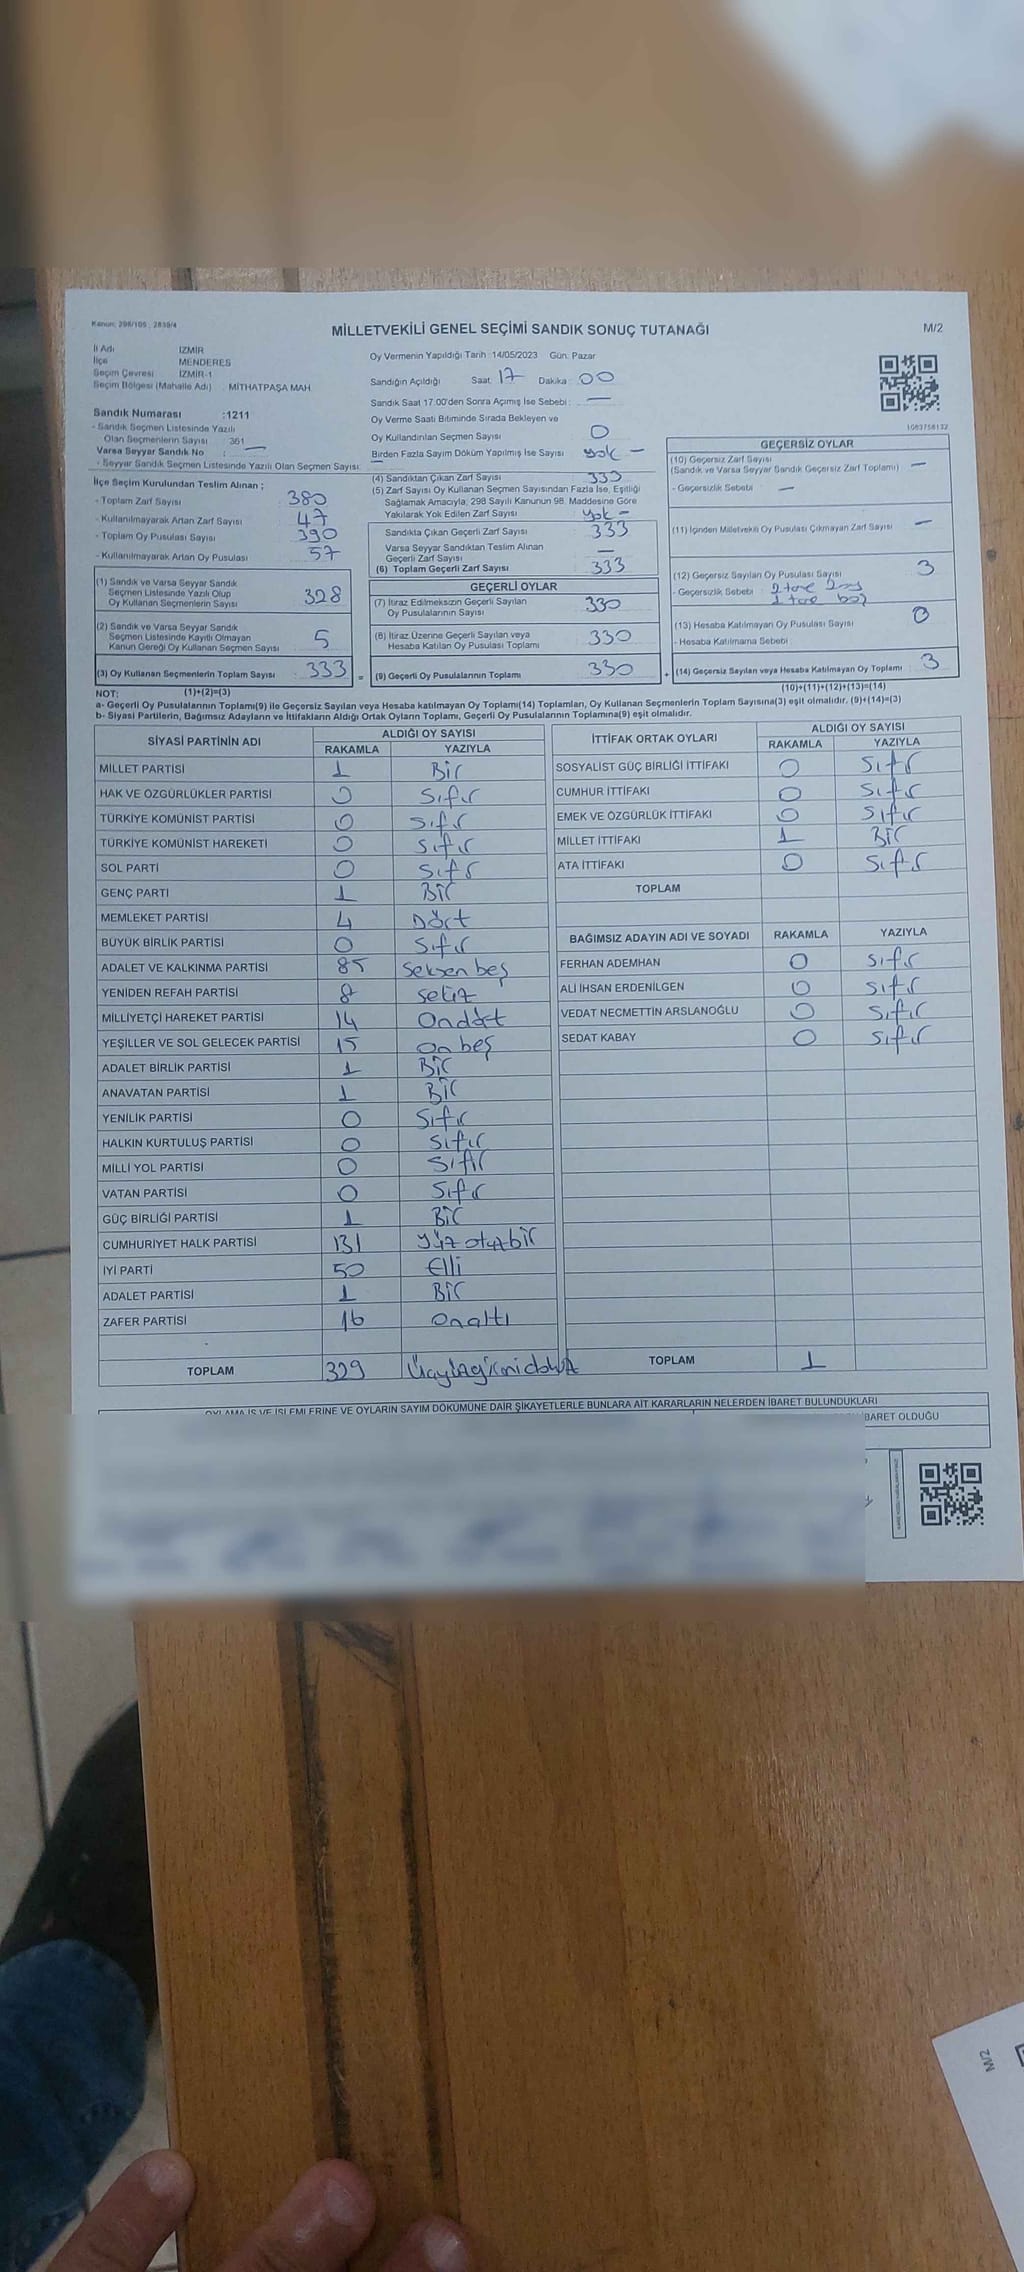 Kanun: 298/105 ; 2839/4
MİLLETVEKİLİ GENEL SEÇİMİ SANDIK SONUÇ TUTANAĞI
M/2
İl Adı İZMİR
İlçe MENDERES
Seçim Çevresi İZMİR-1
Seçim Bölgesi (Mahalle Adı) MİTHATPAŞA MAH
Sandık Numarası :1211
- Sandık Seçmen Listesinde Yazılı
Olan Seçmenlerin Sayısı 361
Varsa Seyyar Sandık No : —
- Seyyar Sandık Seçmen Listesinde Yazılı Olan Seçmen Sayısı:
Oy Vermenin Yapıldığı Tarih : 14/05/2023 Gün: Pazar
Sandığın Açıldığı Saat: 17 Dakika: 00
Sandık Saat 17.00'den Sonra Açımış İse Sebebi : —
Oy Verme Saati Bitiminde Sırada Bekleyen ve
Oy Kullandırılan Seçmen Sayısı 0
Birden Fazla Sayım Döküm Yapılmış İse Sayısı yok —
1083758132
İlçe Seçim Kurulundan Teslim Alınan ;
- Toplam Zarf Sayısı 380
- Kullanılmayarak Artan Zarf Sayısı 47
- Toplam Oy Pusulası Sayısı 390
- Kullanılmayarak Artan Oy Pusulası 57
(1) Sandık ve Varsa Seyyar Sandık
Seçmen Listesinde Yazılı Olup
Oy Kullanan Seçmenlerin Sayısı 328
(2) Sandık ve Varsa Seyyar Sandık
Seçmen Listesinde Kayıtlı Olmayan
Kanun Gereği Oy Kullanan Seçmen Sayısı 5
(3) Oy Kullanan Seçmenlerin Toplam Sayısı : 333 =
(4) Sandıktan Çıkan Zarf Sayısı 333
(5) Zarf Sayısı Oy Kullanan Seçmen Sayısından Fazla İse, Eşitliği
Sağlamak Amacıyla, 298 Sayılı Kanunun 98. Maddesine Göre
Yakılarak Yok Edilen Zarf Sayısı yok —
Sandıkta Çıkan Geçerli Zarf Sayısı 333
Varsa Seyyar Sandıktan Teslim Alınan
Geçerli Zarf Sayısı —
(6) Toplam Geçerli Zarf Sayısı 333
GEÇERLİ OYLAR
(7) İtiraz Edilmeksizin Geçerli Sayılan
Oy Pusulalarının Sayısı 330
(8) İtiraz Üzerine Geçerli Sayılan veya
Hesaba Katılan Oy Pusulası Toplamı 330
(9) Geçerli Oy Pusulalarının Toplamı 330 +
GEÇERSİZ OYLAR
(10) Geçersiz Zarf Sayısı
(Sandık ve Varsa Seyyar Sandık Geçersiz Zarf Toplamı) —
- Geçersizlik Sebebi : —
(11) İçinden Milletvekili Oy Pusulası Çıkmayan Zarf Sayısı —
(12) Geçersiz Sayılan Oy Pusulası Sayısı 3
- Geçersizlik Sebebi : 2 tane
1 tane boş
(13) Hesaba Katılmayan Oy Pusulası Sayısı 0
- Hesaba Katılmama Sebebi
(14) Geçersiz Sayılan veya Hesaba Katılmayan Oy Toplamı 3
NOT: (1)+(2)=(3)
(10)+(11)+(12)+(13)=(14)
a- Geçerli Oy Pusulalarının Toplamı(9) ile Geçersiz Sayılan veya Hesaba katılmayan Oy Toplamı(14) Toplamları, Oy Kullanan Seçmenlerin Toplam Sayısına(3) eşit olmalıdır. (9)+(14)=(3)
b- Siyasi Partilerin, Bağımsız Adayların ve İttifakların Aldığı Ortak Oyların Toplamı, Geçerli Oy Pusulalarının Toplamına(9) eşit olmalıdır.
SİYASİ PARTİNİN ADI ALDIĞI OY SAYISI
RAKAMLA YAZIYLA
MİLLET PARTİSİ 1 Bir
HAK VE ÖZGÜRLÜKLER PARTİSİ 0 Sıfır
TÜRKİYE KOMÜNİST PARTİSİ 0 Sıfır
TÜRKİYE KOMÜNİST HAREKETİ 0 Sıfır
SOL PARTİ 0 Sıfır
GENÇ PARTİ 1 Bir
MEMLEKET PARTİSİ 4 Dört
BÜYÜK BİRLİK PARTİSİ 0 Sıfır
ADALET VE KALKINMA PARTİSİ 85 Seksen beş
YENİDEN REFAH PARTİSİ 8 Sekiz
MİLLİYETÇİ HAREKET PARTİSİ 14 Ondört
YEŞİLLER VE SOL GELECEK PARTİSİ 15 On beş
ADALET BİRLİK PARTİSİ 1 Bir
ANAVATAN PARTİSİ 1 Bir
YENİLİK PARTİSİ 0 Sıfır
HALKIN KURTULUŞ PARTİSİ 0 Sıfır
MİLLİ YOL PARTİSİ 0 Sıfır
VATAN PARTİSİ 0 Sıfır
GÜÇ BİRLİĞİ PARTİSİ 1 Bir
CUMHURİYET HALK PARTİSİ 131 Yüz otuz bir
İYİ PARTİ 50 Elli
ADALET PARTİSİ 1 Bir
ZAFER PARTİSİ 16 Onaltı
TOPLAM 329 Üçyüzyirmidokuz
İTTİFAK ORTAK OYLARI ALDIĞI OY SAYISI
RAKAMLA YAZIYLA
SOSYALİST GÜÇ BİRLİĞİ İTTİFAKI 0 Sıfır
CUMHUR İTTİFAKI 0 Sıfır
EMEK VE ÖZGÜRLÜK İTTİFAKI 0 Sıfır
MİLLET İTTİFAKI 1 Bir
ATA İTTİFAKI 0 Sıfır
TOPLAM
BAĞIMSIZ ADAYIN ADI VE SOYADI RAKAMLA YAZIYLA
FERHAN ADEMHAN 0 Sıfır
ALİ İHSAN ERDENİLGEN 0 Sıfır
VEDAT NECMETTİN ARSLANOĞLU 0 Sıfır
SEDAT KABAY 0 Sıfır
TOPLAM 1
OYLAMA İŞ VE İŞLEMLERİNE VE OYLARIN SAYIM DÖKÜMÜNE DAİR ŞİKAYETLERLE BUNLARA AİT KARARLARIN NELERDEN İBARET BULUNDUKLARI
İBARET OLDUĞU
M/2